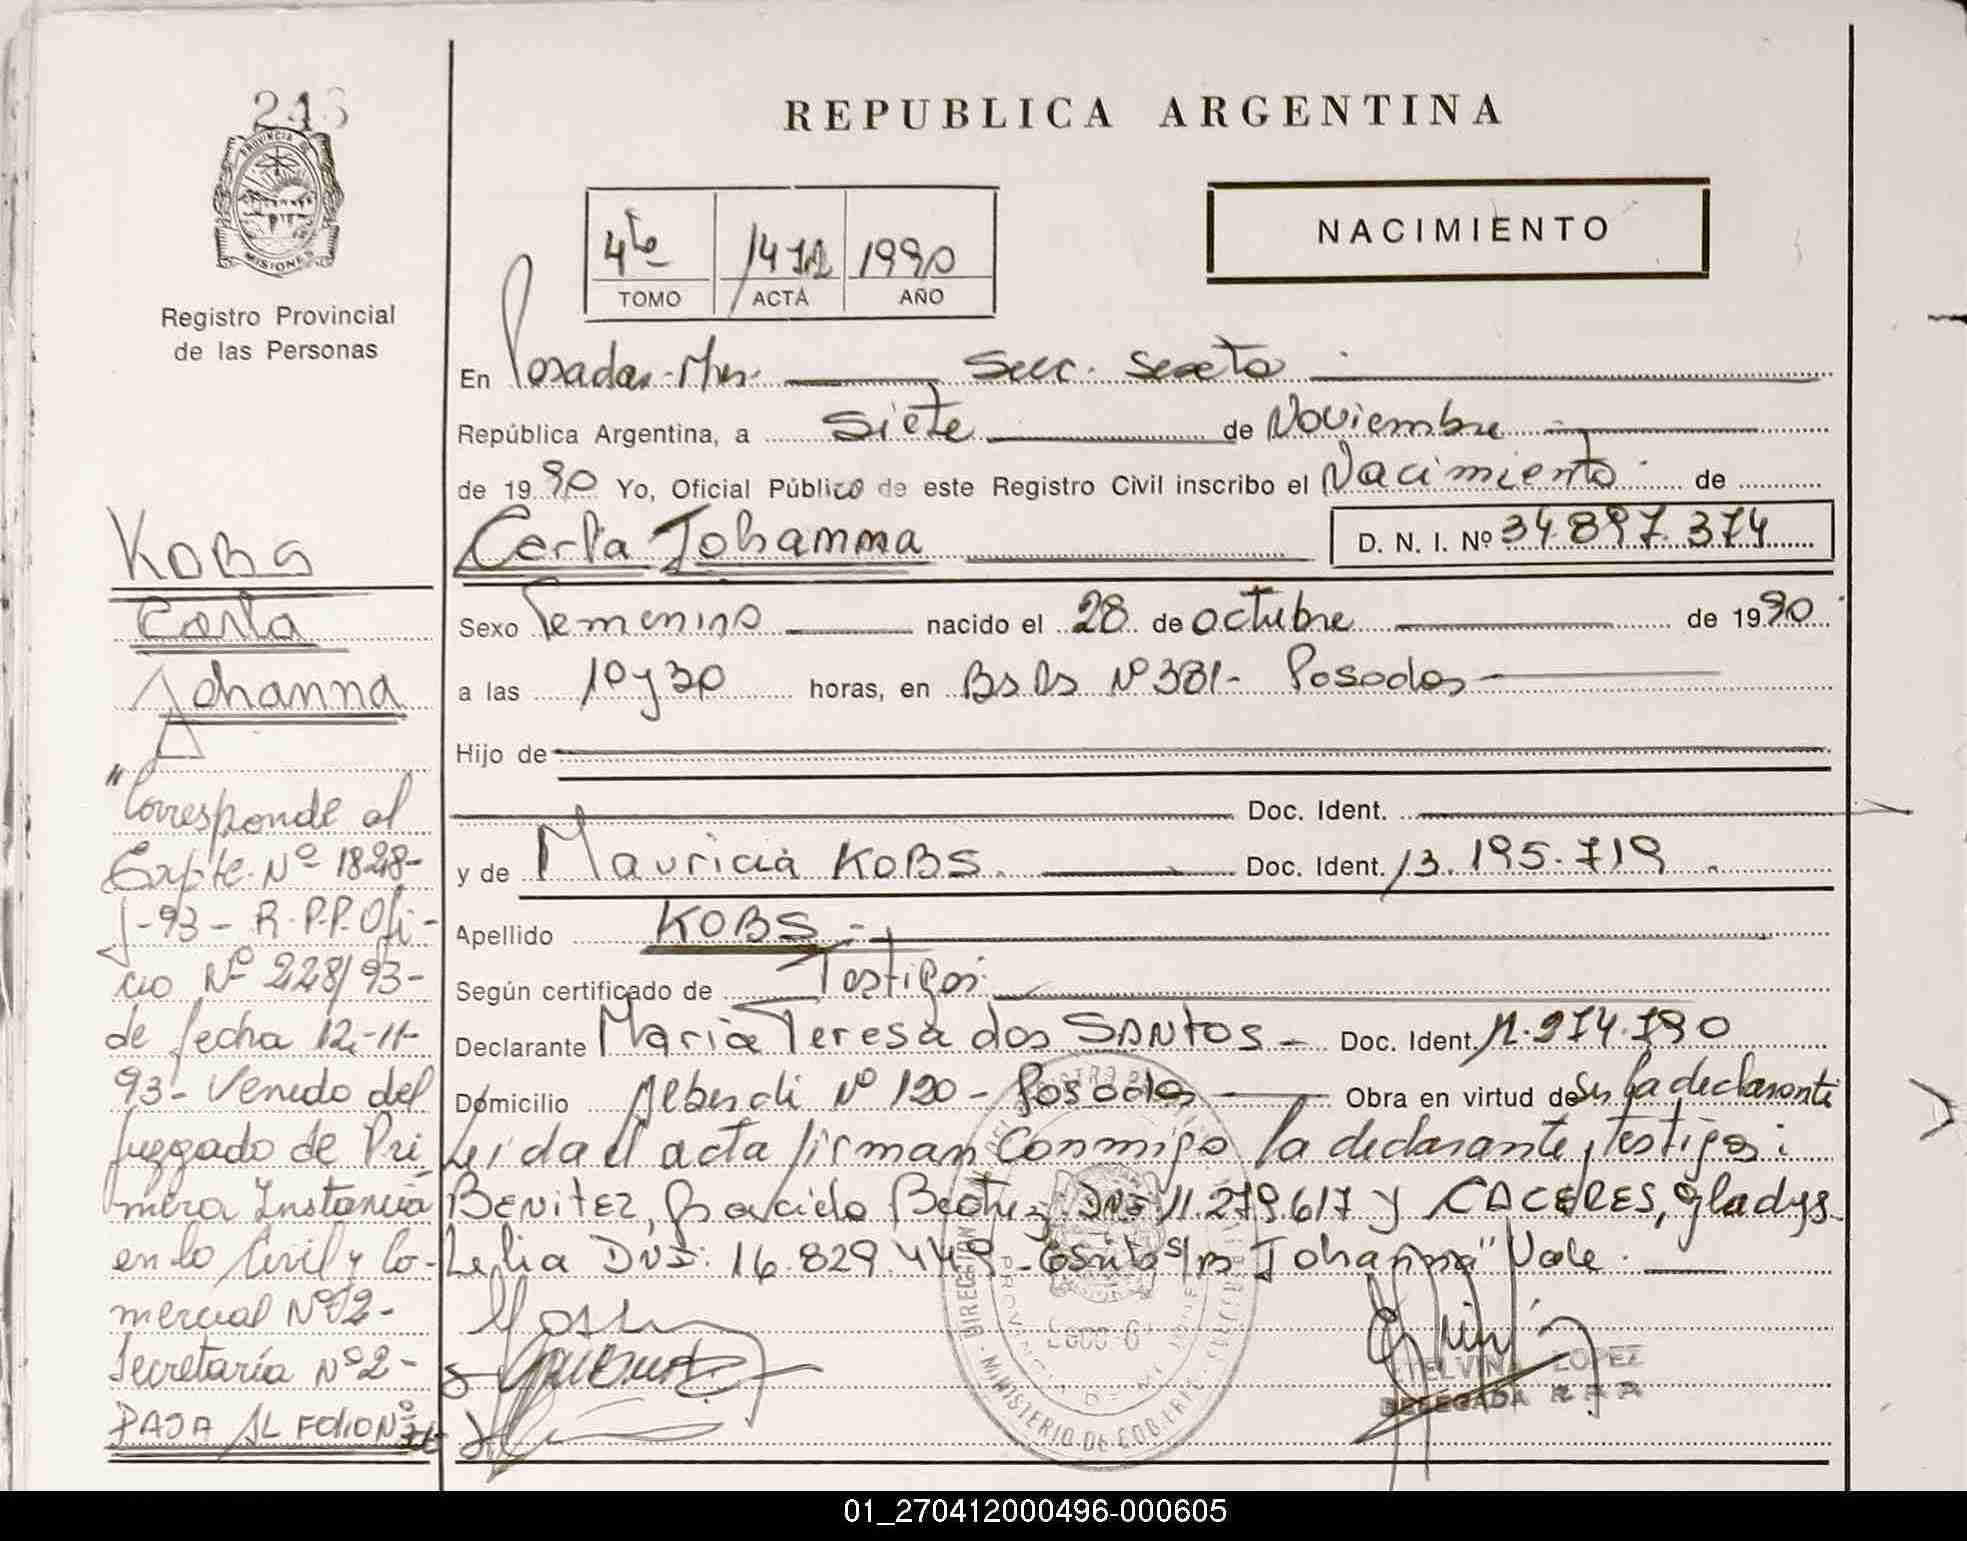 REPUBLICA ARGENTINA
PROVINCIA DE
MISIONES
Registro Provincial
de las Personas
NACIMIENTO
4to 1990
TOMO ACTA AÑO
En Posadas-Mnes. Secc. Sexta
República Argentina, a Siete de Noviembre
de 1990 Yo, Oficial Público de este Registro Civil inscribo el Nacimiento de
Carla Johanna D. N. I. Nº 34.897.374
Sexo Femenino nacido el 28 de octubre de 1990
a las 10 y 30 horas, en Bs As Nº 381- Posadas-
Hijo de
Doc. Ident.
y de Mauricia KOBS. Doc. Ident. 13.195.719
Apellido KOBS.-
Según certificado de Testigos
Declarante Maria Teresa dos SANTOS - Doc. Ident. 11.974.790
Domicilio Alberdi Nº 120- Posadas Obra en virtud de Ser la declarante
Leída el acta firman conmigo la declarante y testigos:
BENITEZ, Graciela Beatriz DNI 11.279.617 y CACERES, Gladys
Lelia DNI: 16.829.449- Escrito s/r Johanna" Vale.
KOBS
Carla
Johanna
"Corresponde al
Expte. Nº 1828-
J-93- R.P.P. Ofi-
cio Nº 228/93-
de fecha 12-11-
93- Venido del
Juzgado de Pri
mera Instancia
en lo Civil y Co-
mercial Nº 2-
Secretaría Nº 2-
PASA AL FOLIO Nº
ETELVINA LOPEZ
DELEGADA R.P.P.
01_270412000496-000605